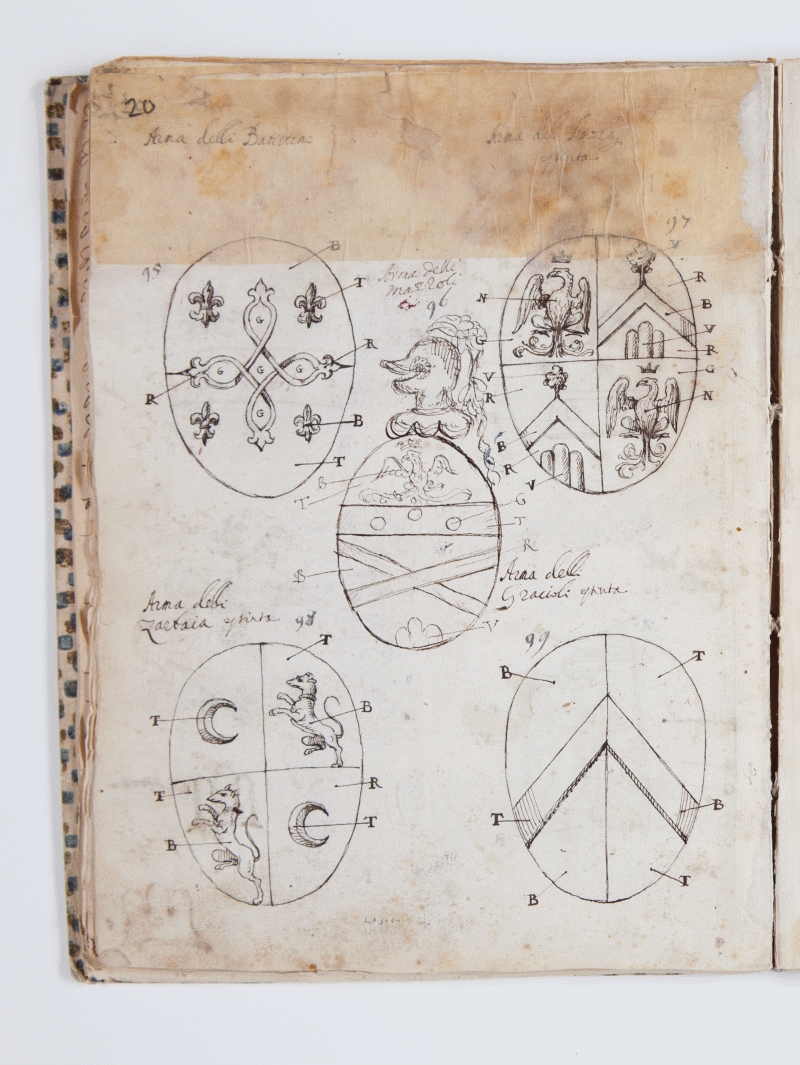 20
Arma delli
Arma delli
95
B
T
R
R
B
T
Arma delli
Mazzoli
96
B
T
G
T
R
B
V
97
V
N
R
B
G
V
V
R
R
G
N
B
R
V
Arma delli
Zarbaia estinta
98
T
T
B
T
R
T
B
Arma delli
Gracioli estinta
99
B
T
T
B
B
T